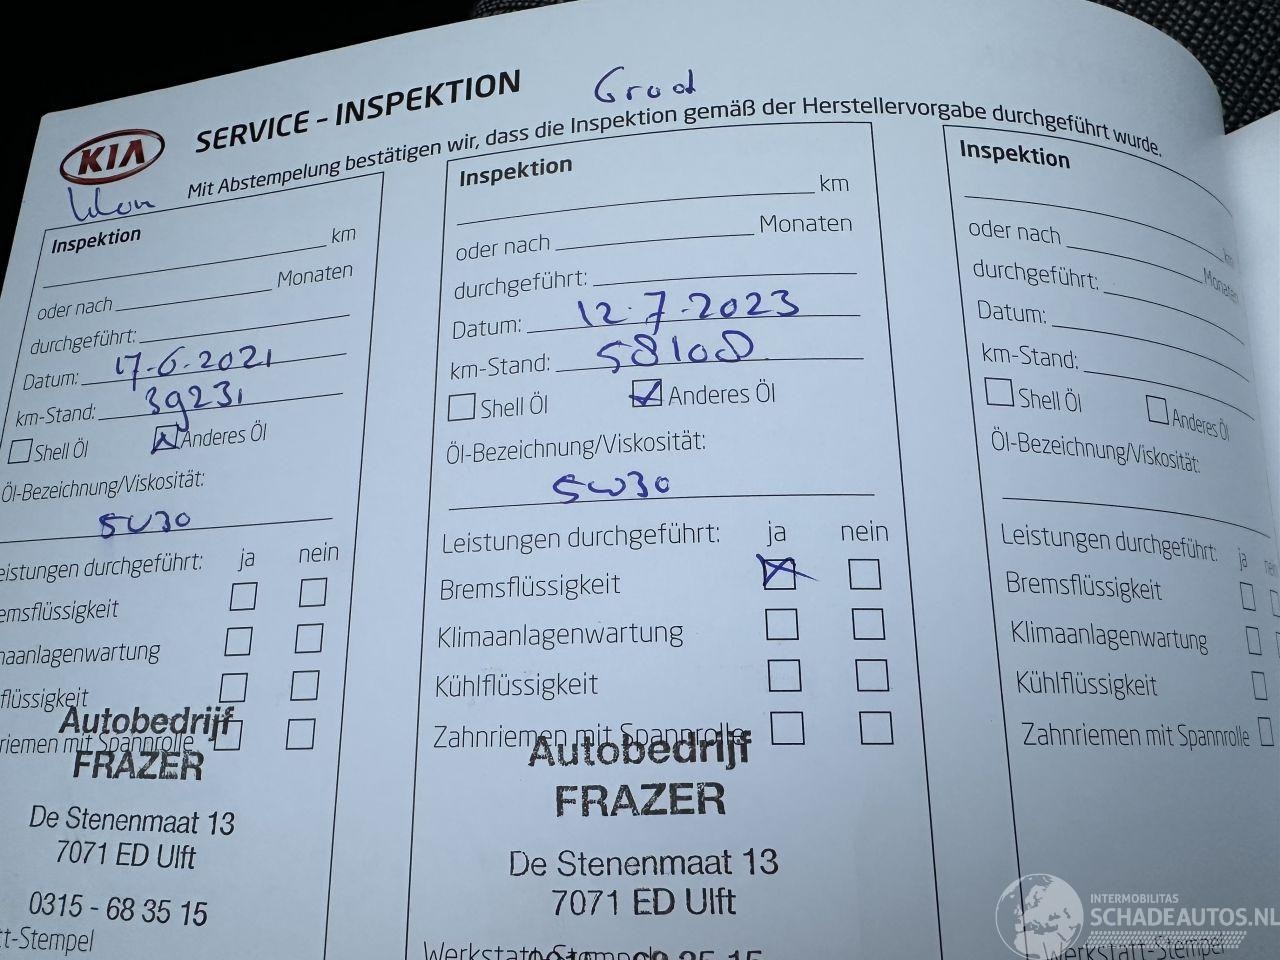 KIA
SERVICE – INSPEKTION
Grod
Mit Abstempelung bestätigen wir, dass die Inspektion gemäß der Herstellervorgabe durchgeführt wurde.
Inspektion
km
oder nach Monaten
durchgeführt:
Datum: 17-6-2021
km-Stand: 39231
Shell Öl Anderes Öl
Öl-Bezeichnung/Viskosität:
5W30
eistungen durchgeführt: ja nein
emsflüssigkeit
naanlagenwartung
flüssigkeit
riemen mit Spannrolle
Autobedrijf
FRAZER
De Stenenmaat 13
7071 ED Ulft
0315 - 68 35 15
tt-Stempel
Inspektion
km
oder nach Monaten
durchgeführt:
Datum: 12-7-2023
km-Stand: 58108
Shell Öl Anderes Öl
Öl-Bezeichnung/Viskosität:
5W30
Leistungen durchgeführt: ja nein
Bremsflüssigkeit
Klimaanlagenwartung
Kühlflüssigkeit
Zahnriemen mit Spannrolle
Autobedrijf
FRAZER
De Stenenmaat 13
7071 ED Ulft
Inspektion
km
oder nach Monaten
durchgeführt:
Datum:
km-Stand:
Shell Öl Anderes Öl
Öl-Bezeichnung/Viskosität:
Leistungen durchgeführt: ja
Bremsflüssigkeit
Klimaanlagenwartung
Kühlflüssigkeit
Zahnriemen mit Spannrolle
Werkstatt-Stempel
INTERMOBILITAS
SCHADEAUTOS.NL